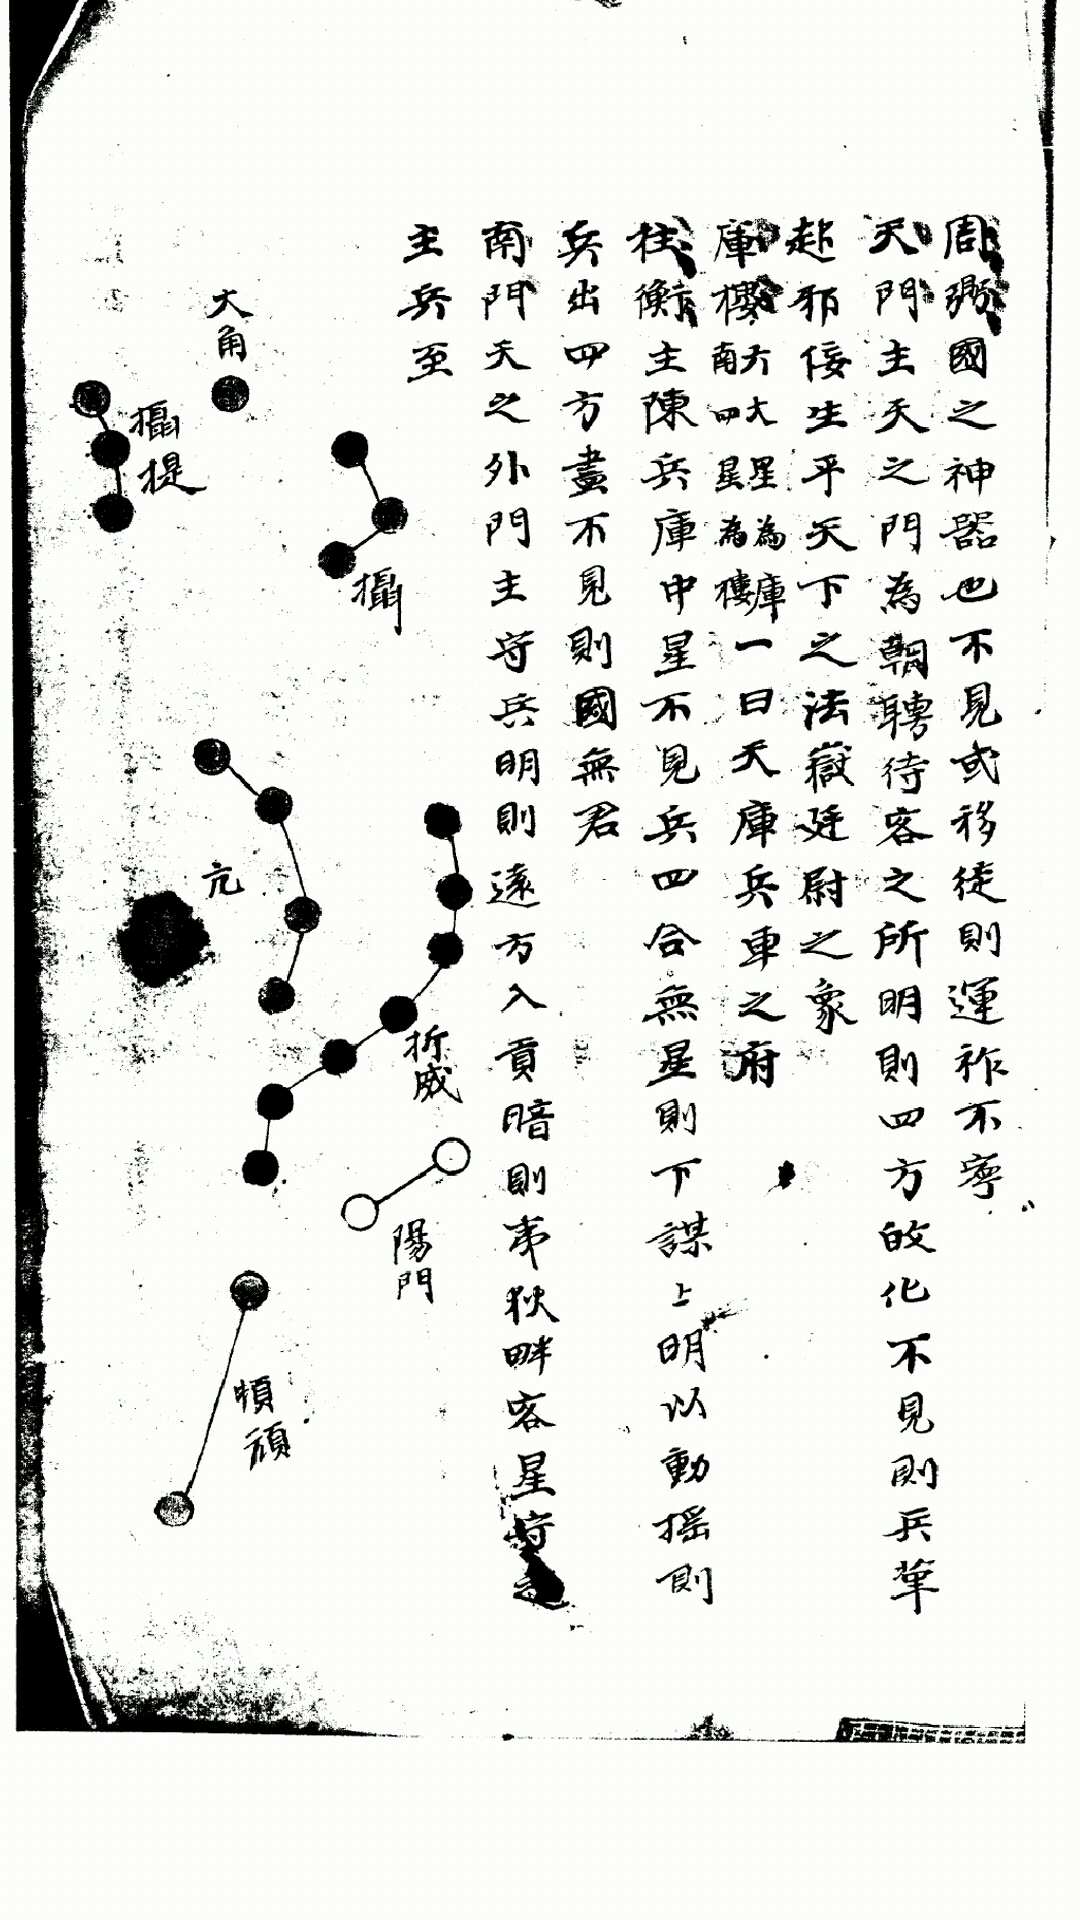 周鼎國之神器也不見或移徒則運祚不寧
天門主天之門為朝聘待客之所明則四方攸化不見則兵革
起邪佞生平天下之法嶽廷尉之象
庫樓六大星為庫南四星為樓一曰天庫兵車之府
柱衡主陳兵庫中星不見兵四合無星則下謀上明以動摇則
兵出四方盡不見則國無君
南門天之外門主守兵明則遠方入貢暗則夷狄畔客星守之
主兵至
大角
攝提
攝
亢
折威
陽門
頓頑